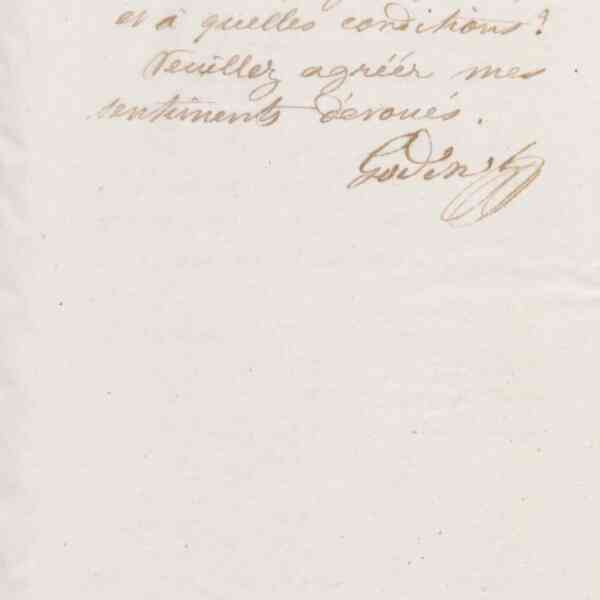 et à quelles conditions?
Veuillez agréer mes
sentiments dévoués.
Godin